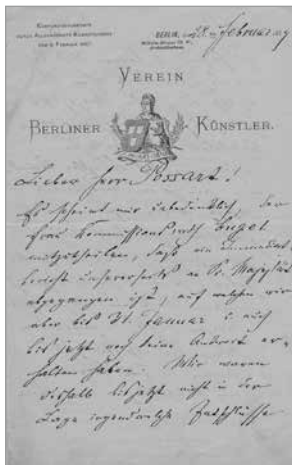 BERLIN,
28. Februar
VEREIN
BERLINER KÜNSTLER.
Lieber Herr Possart!
Es scheint mir unbedenklich, der
Frau Kommissionsrath Engel
mitzutheilen, daß ein Immediat
bericht unsererseits an Se. Majestät
abgegangen ist, auf welchen wir
aber bis 31. Januar u. auch
bis jetzt noch keine Antwort er-
halten haben. Wir waren
deshalb bis jetzt nicht in der
Lage irgendwelche Entschlüsse